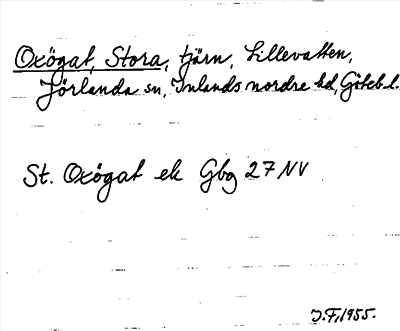 Oxögat, Stora, tjärn, Lillevatten,
Jörlanda sn, Inlands nordre hd, Göteb. l.
St. Oxögat ek Gbg 27 NV
J.F. 1955.